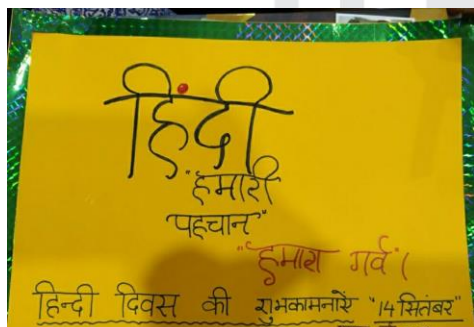 हिंदी
"हमारी
पहचान"
"हमारा गर्व"।
हिन्दी दिवस की शुभकामनाएें "14 सितंबर"